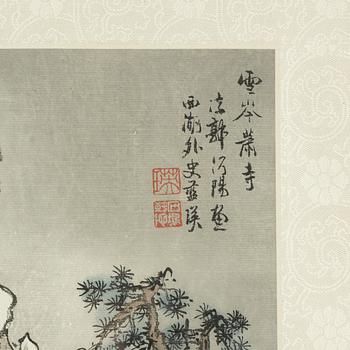 雪岑蕭寺
法郭河陽畫
西湖外史藍瑛